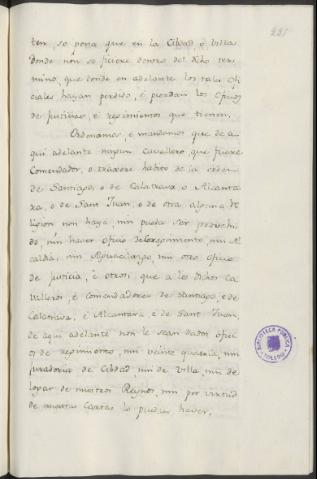 221
ten, so pena que en la Cibdad o Villas
donde non se ficiere dentro del dicho ter
mino, que donde en adelante los tales Ofi
ciales hayan perdido, é pierdan los Oficios
de justicias, é regimientos que tienen.
Ordenamos, é mandamos que de a
qui adelante ningun Cavallero, que fuere
Comendador, o traxere habito de la orden
de Santiago, o de Calatrava, o Alcanta
ra, o de Sant Juan, o de otra alguna Re
ligion non haya, nin pueda ser provehi
do, nin haver oficio de Corregimiento, nin Al
caldia, nin Alguacilazgo, nin otro oficio
de justicia, é otrosi, que a los dichos Ca
valleros, é Comendadores de Santiago, é de
Calatrava, é Alcantara é de Sant Juan,
de aqui adelante non le sean dados ofici
os de regimientos, nin veinte quatria, nin
juradorias de Cibdad, nin de Villa, nin de
logar de nuestros Reynos, nin por virtud
de nuestras Cartas lo puedan haver.
BIBLIOTECA PUBLICA
TOLEDO